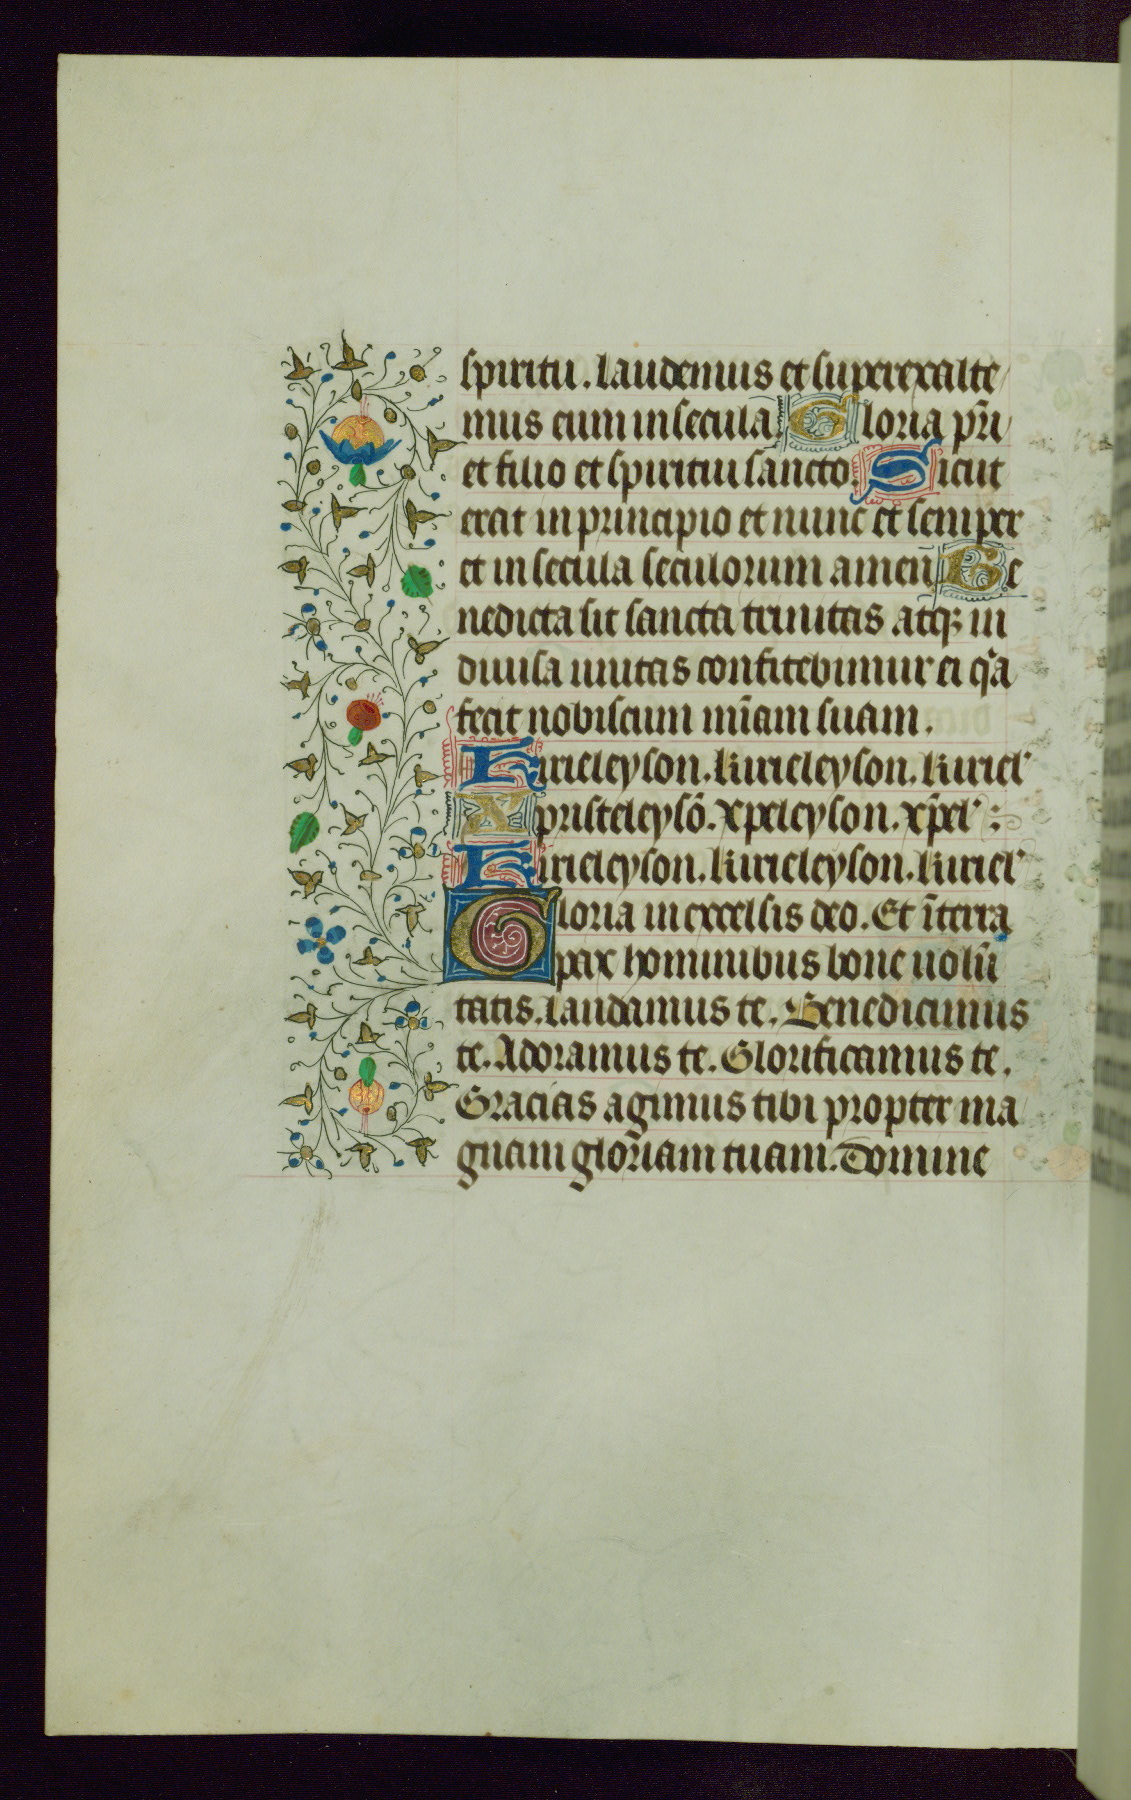 spiritu. laudemus et superexalte
mus eum in secula. Gloria pr̃i
et filio et spiritui sancto. Sicut
erat in principio et nunc et semper
et in secula seculorum amen̄ Be
nedicta sit sancta trinitas atq; in
diuisa unitas confitebimur ei qa
fecit nobiscum mĩam suam.
Kirieleyson. kirieleyson. kiriel'
Xpristeleysō. xpeleyson. xp̄el' :
Kirieleyson. kirieleyson. kiriel'
Gloria in excelsis deo. Et ī terra
pax hominibus bone uolū
tatis. laudamus te. Benedicimus
te. Adoramus te. Glorificamus te.
Gracias agimus tibi propter ma
gnam gloriam tuam. Domine